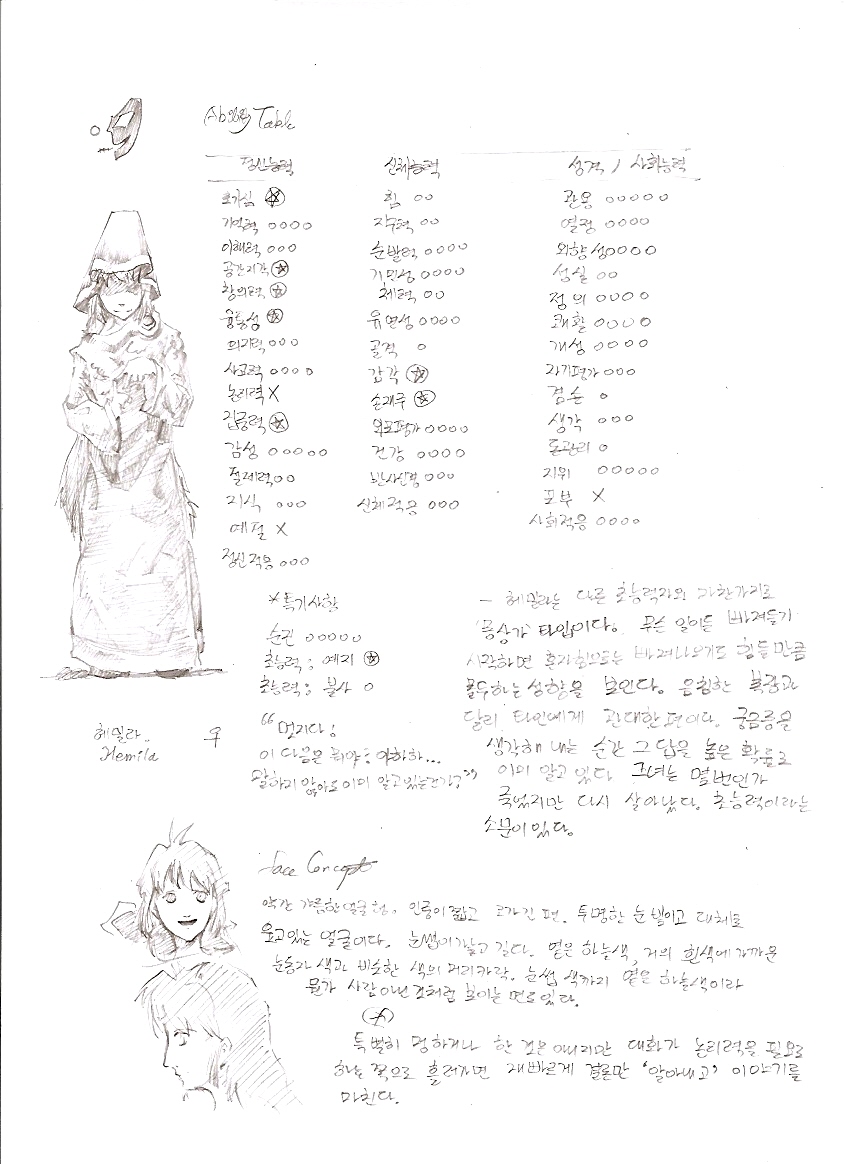 Ability Table
정신능력 신체능력 성격 / 사회능력
호기심 ☆ 힘 ○○ 관용 ○○○○○
기억력 ○○○○ 지구력 ○○ 열정 ○○○○
이해력 ○○○ 순발력 ○○○○ 외향성 ○○○○
공간지각 ☆ 기민성 ○○○○ 성실 ○○
창의력 ☆ 체력 ○○ 정의 ○○○○
융통성 ☆ 유연성 ○○○○ 쾌활 ○○○○
의지력 ○○○ 골격 ○ 개성 ○○○○
사고력 ○○○○ 감각 ☆ 자기평가 ○○○
논리력 X 손재주 ☆ 겸손 ○
집중력 ☆ 외모평가 ○○○○ 생각 ○○○
감성 ○○○○○ 건강 ○○○○ 돈관리 ○
절제력 ○○ 반사신경 ○○○ 지위 ○○○○○
지식 ○○○ 신체적응 ○○○ 포부 X
예절 X 사회적응 ○○○○
정신적응 ○○○
*특기사항
순진 ○○○○○
초능력 ; 예지 ☆
초능력 ; 불사 ○
"멋지다!
이 다음은 뭐야? 아하하...
말하지 않아도 이미 알고있는건가?"
헤밀라. 우
Hemila
- 헤밀라는 다른 초능력자와 마찬가지로
'몽상가' 타입이다. 무슨 일이든 빠져들기
시작하면 혼자힘으로는 빠져나오기도 힘들만큼
몰두하는 성향을 보인다. 음침한 복장과
달리 타인에게 관대한 편이다. 궁금증을
생각해 내는 순간 그 답을 높은 확률로
이미 알고 있다. 그녀는 몇번인가
죽었지만 다시 살아났다. 초능력이라는
소문이 있다.
face Concept
약간 갸름한 얼굴형. 인중이 짧고 코가 긴 편. 투명한 눈빛이고 대체로
웃고있는 얼굴이다. 눈썹이 가늘고 길다. 옅은 하늘색, 거의 흰색에 가까운
눈동자 색과 비슷한 색의 머리카락. 눈썹 색까지 옅은 하늘색이라
뭔가 사람 아닌 것처럼 보이는 면도 있다.
특별히 멍하거나 한 것은 아니지만 대화가 논리력을 필요로
하는 쪽으로 흘러가면 재빠르게 결론만 '알아내고' 이야기를
마친다.